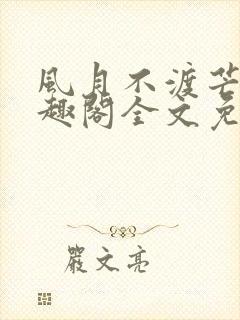 風月不渡芒
趣閣全文免
嚴文亮